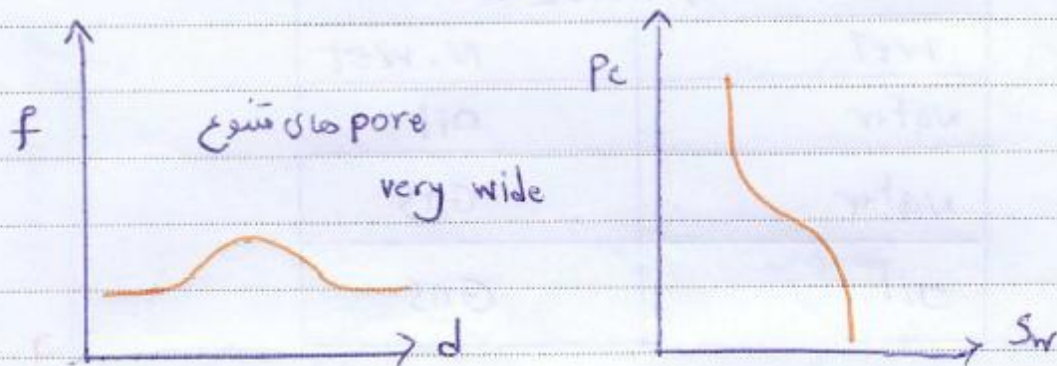 f
pore های متنوع
very wide
d
Pc
Sw